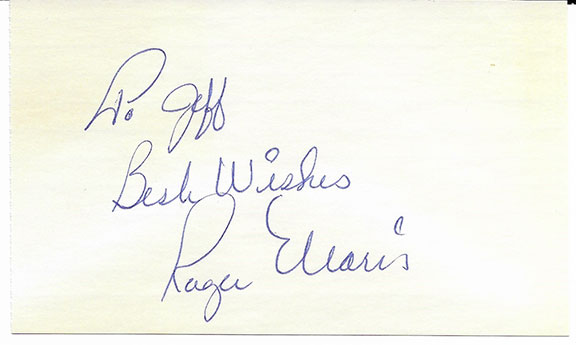 To Jeff
Best Wishes
Roger Maris